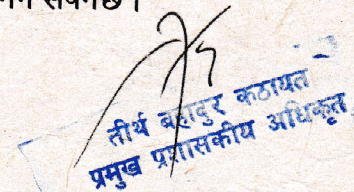 सक्नेछ ।
तीर्थ बहादुर कठायत
प्रमुख प्रशासकीय अधिकृत